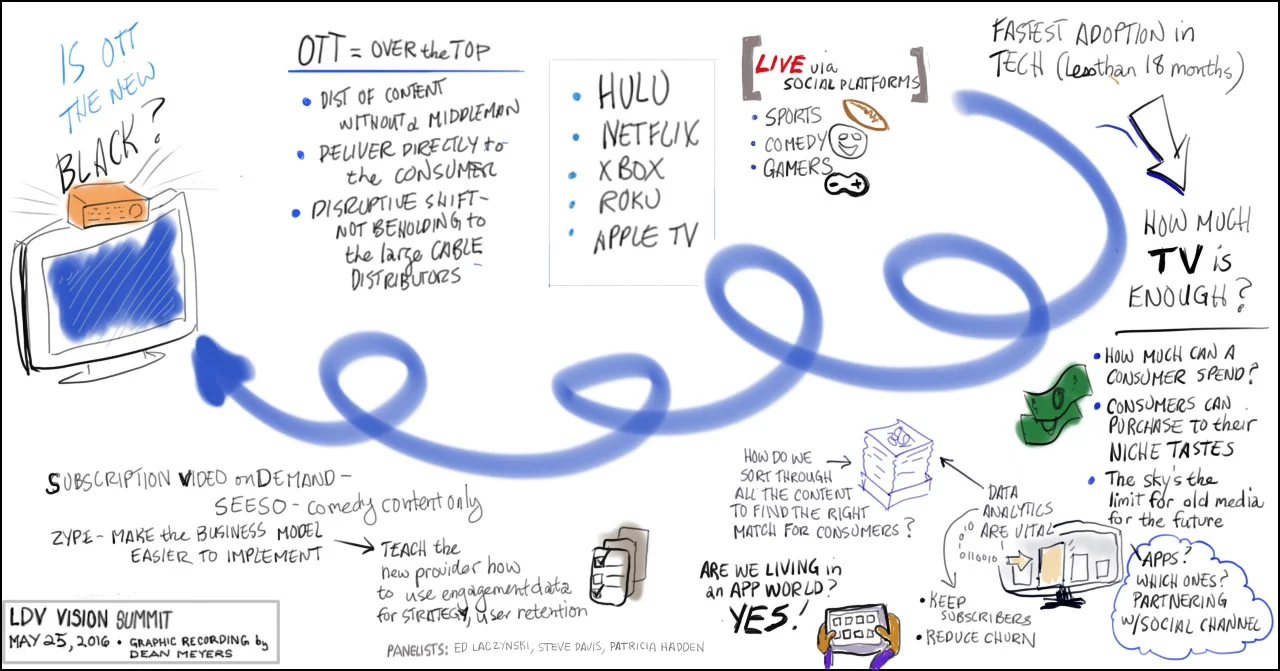 IS OTT
THE NEW
BLACK?
OTT = OVER the TOP
• DIST OF CONTENT
WITHOUT a MIDDLEMAN
• DELIVER DIRECTLY to
the CONSUMER
• DISRUPTIVE SHIFT-
NOT BEHOLDING to
the large CABLE
DISTRIBUTORS
• HULU
• NETFLIX
• XBOX
• ROKU
• APPLE TV
[LIVE via
SOCIAL PLATFORMS]
• SPORTS
• COMEDY
• GAMERS
FASTEST ADOPTION in
TECH (Less than 18 months)
HOW MUCH
TV is
ENOUGH?
• HOW MUCH CAN A
CONSUMER SPEND?
• CONSUMERS CAN
PURCHASE TO their
NICHE TASTES
• The sky's the
limit for old media
for the future
APPS?
WHICH ONES?
PARTNERING
W/SOCIAL CHANNEL
HOW DO WE
SORT THROUGH
ALL THE CONTENT
TO FIND THE RIGHT
MATCH FOR CONSUMERS?
DATA
ANALYTICS
ARE VITAL
10
0110010
• KEEP
SUBSCRIBERS
• REDUCE CHURN
ARE WE LIVING in
an APP WORLD?
YES!
SUBSCRIPTION VIDEO on DEMAND -
SEESO - comedy content only
ZYPE - MAKE the BUSINESS MODEL
EASIER TO IMPLEMENT
TEACH the
new provider how
to use engagement data
for STRATEGY, user retention
LDV VISION SUMMIT
MAY 25, 2016 • GRAPHIC RECORDING by
DEAN MEYERS
PANELISTS: ED LACZYNSKI, STEVE DAVIS, PATRICIA HADDEN